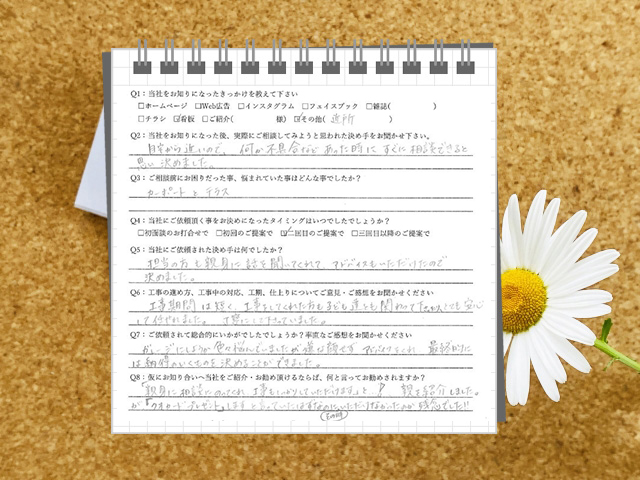 Q1：当社をお知りになったきっかけを教えて下さい
□ホームページ □Web広告 □インスタグラム □フェイスブック □雑誌( )
□チラシ ☑看板 □ご紹介( 様) ☑その他( 近所 )
Q2：当社をお知りになった後、実際にご相談してみようと思われた決め手をお聞かせ下さい。
自宅から近いので、何か不具合などあった時にすぐに相談できると
思い決めました。
Q3：ご相談前にお困りだった事、悩まれていた事はどんな事でしたか？
カーポートとテラス
Q4：当社にご依頼頂く事をお決めになったタイミングはいつでしたでしょうか？
□初面談のお打合せで □初回のご提案で ☑二回目のご提案で □三回目以降のご提案で
Q5：当社にご依頼された決め手は何でしたか？
担当の方も親身に話を聞いてくれて、アドバイスもいただけたので
決めました。
Q6：工事の進め方、工事中の対応、工期、仕上りについてご意見・ご感想をお聞かせください
工事期間は短く、工事をしてくれた方も子ども達とも関わって下さりとても安心
して行せました。丁寧にして下さっていました。
Q7：ご依頼されて総合的にいかがでしたでしょうか？率直なご感想をお聞かせください
ガレージにしようか色々悩んでいましたが嫌な顔せずアドバイスをくれ、最終的に
は納得のいくものを決めることができました。
Q8：仮にお知り合いへ当社をご紹介・お勧め頂けるならば、何と言ってお勧めされますか？
「親身に相談にのってくれ、工事もしっかりしていただけますよ」 親を紹介しました。
が「クオカードプレゼント」しますと言っていたはずなのにいただけなかったのが残念でした!!